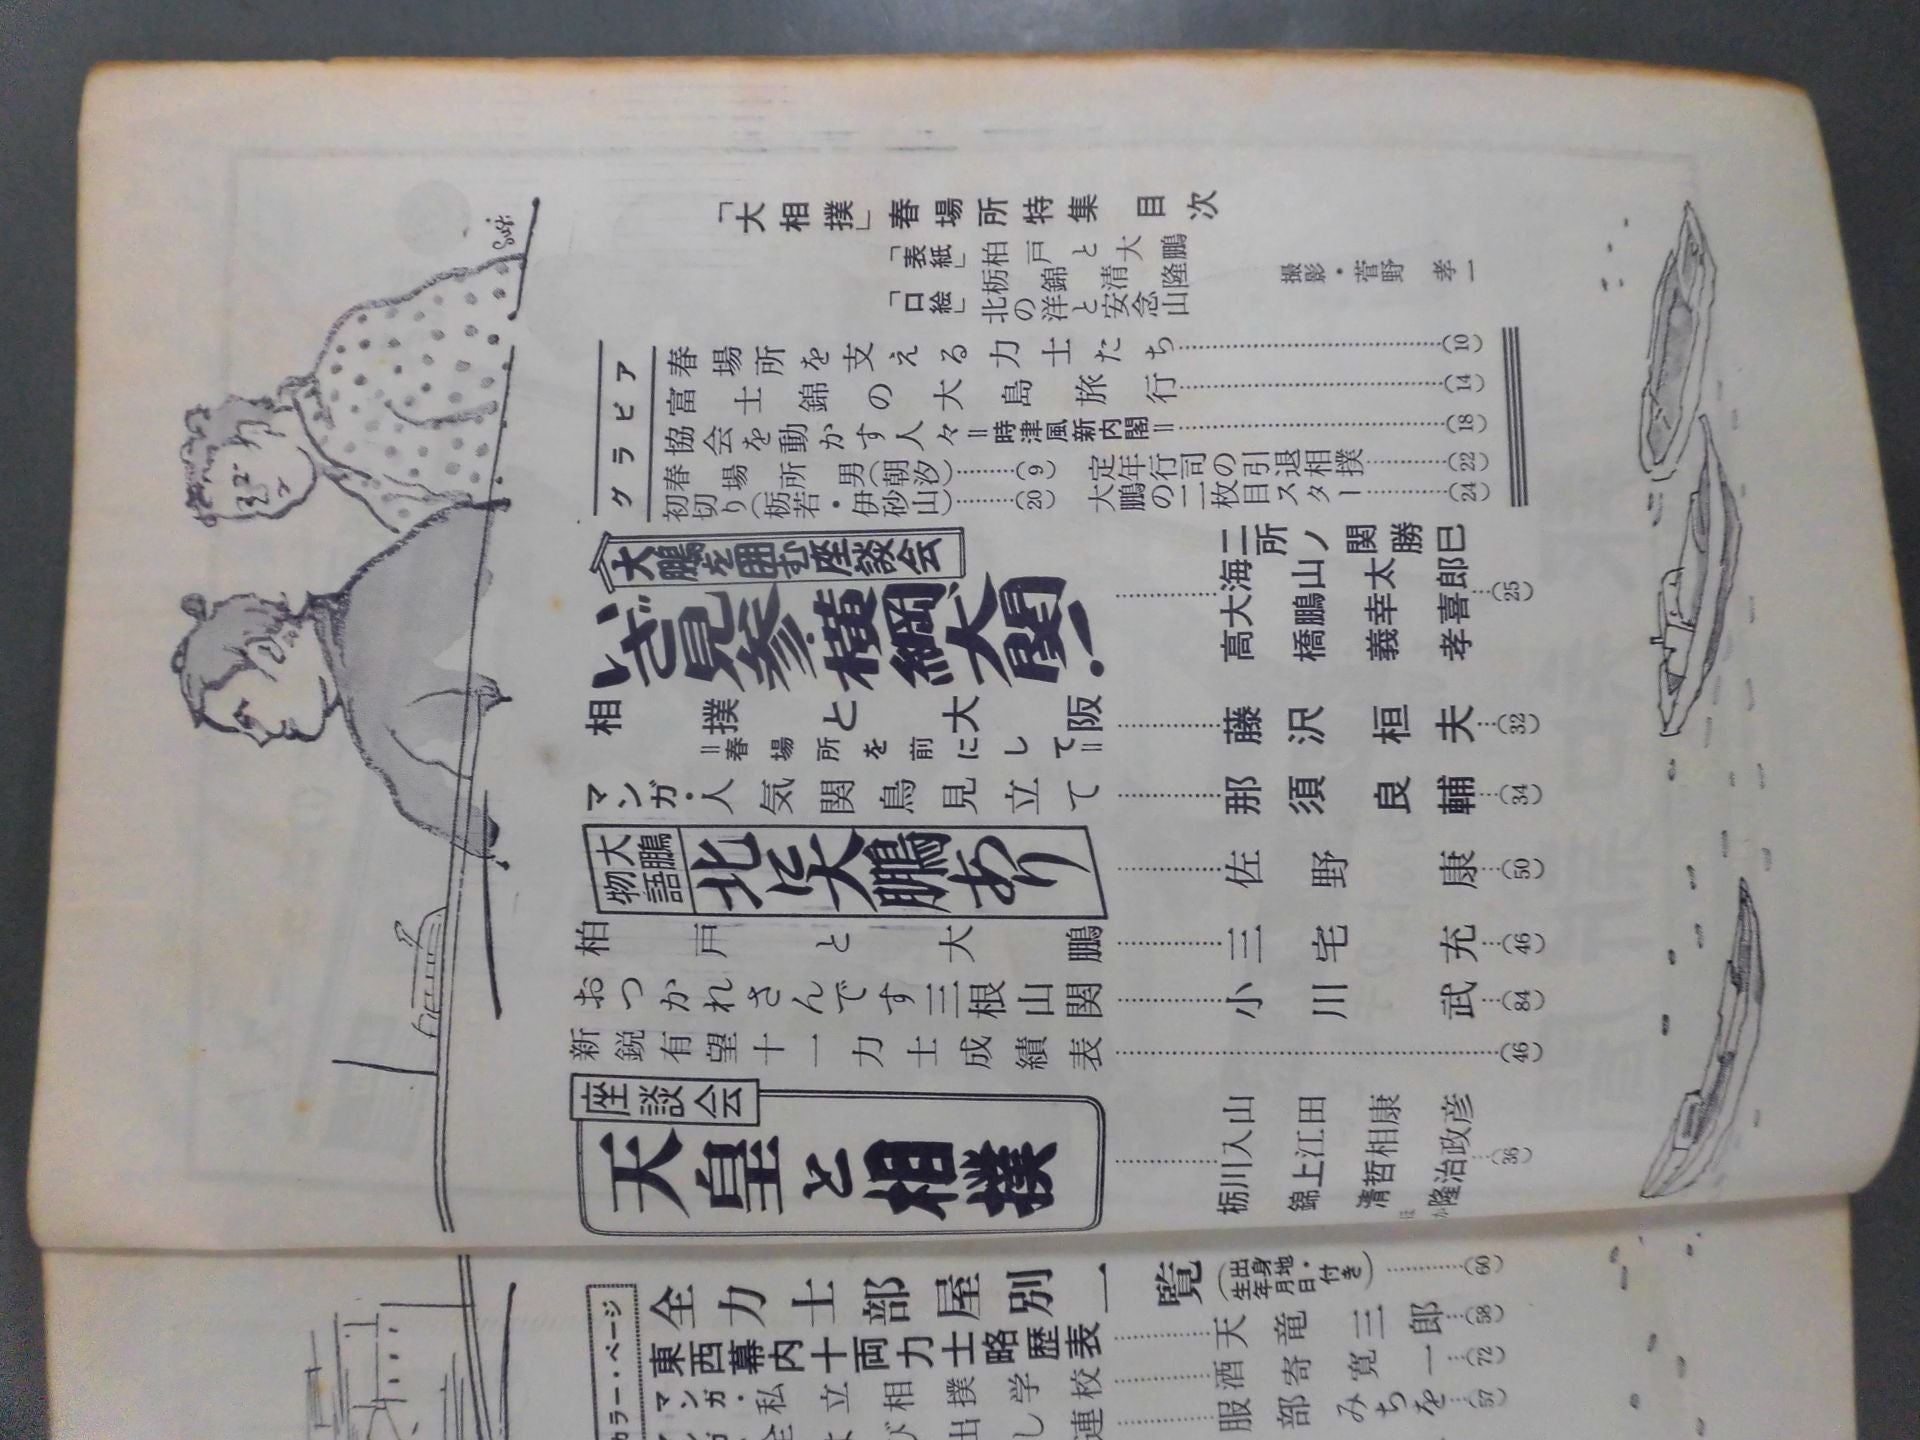 「大相撲」春場所特集　目次
「表紙」柏戸と大鵬
「口絵」北の洋と安念山
栃錦と清隆
撮影・菅野孝一
グラビア
春場所を支える力士たち……(10)
富士錦の大島旅行……(14)
協会を動かす人々＝時津風新内閣＝……(18)
春場所男（朝汐）……(9)
初切り（栃若・伊砂山）……(20)
定年行司の引退相撲……(22)
大鵬の二枚目スター……(24)
大鵬を囲む座談会
いざ見参・横綱大関！……(25)
二所ノ関勝巳
海山太郎
大鵬幸喜
高橋義孝
相撲と大阪……藤沢桓夫…(32)
＝春場所を前にして＝
マンガ・人気関鳥見立て……那須良輔…(34)
大鵬物語
北に大鵬あり……佐野康…(50)
柏戸と大鵬……三宅充…(46)
おつかれさんです三根山関……小川武…(84)
新鋭有望十一力士成績表……(46)
座談会
天皇と相撲……(36)
山田康彦
入江相政
川上哲治
栃錦清隆
ほか
全力士部屋別一覧（出身地・生年月日付き）……(60)
東西幕内十両力士略歴表……天竜三郎…(58)
カラー・ページ